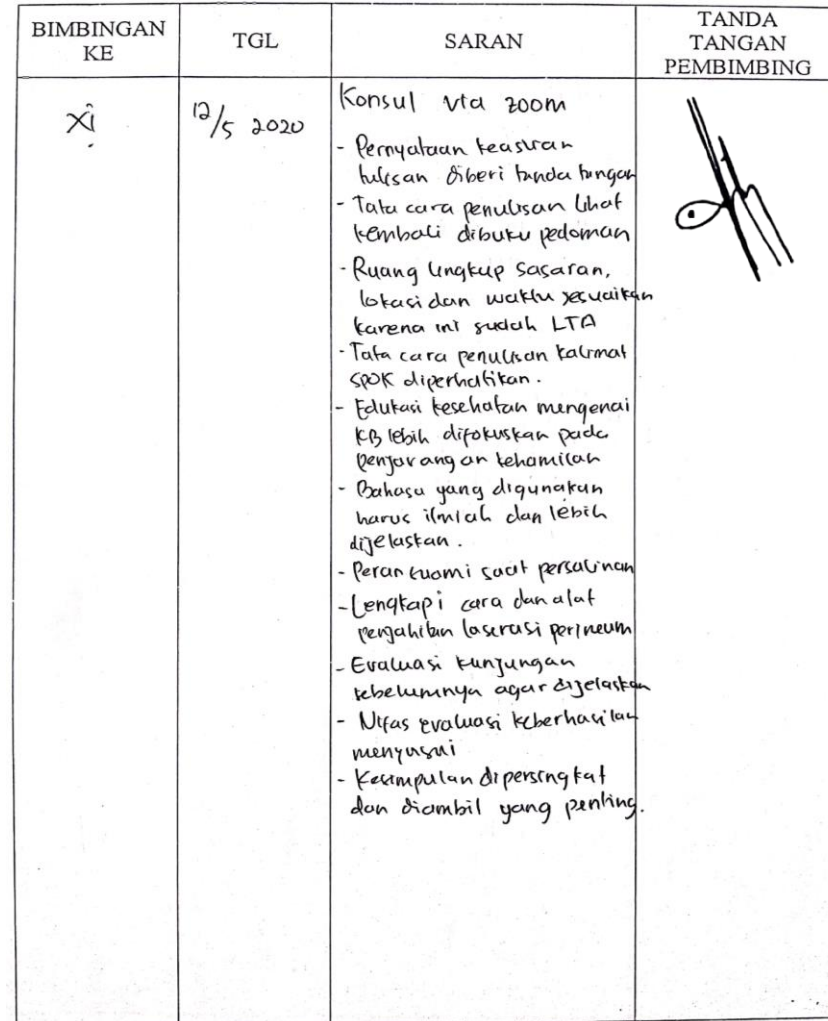 BIMBINGAN
KE
TGL
SARAN
TANDA
TANGAN
PEMBIMBING
XI
12/5 2020
Konsul via zoom
- Pernyataan keaslian
tulisan diberi tanda tangan
- Tata cara penulisan lihat
kembali dibuku pedoman
- Ruang lingkup sasaran,
lokasi dan waktu sesuaikan
karena ini sudah LTA
- Tata cara penulisan kalimat
SPOK diperhatikan.
- Edukasi kesehatan mengenai
KB lebih difokuskan pada
penjarangan kehamilan
- Bahasa yang digunakan
harus ilmiah dan lebih
dijelaskan.
- Peran suami saat persalinan
- Lengkapi cara dan alat
penjahitan laserasi perineum
- Evaluasi kunjungan
sebelumnya agar dijelaskan
- Nifas evaluasi keberhasilan
menyusui
- Kesimpulan dipersingkat
dan diambil yang penting.